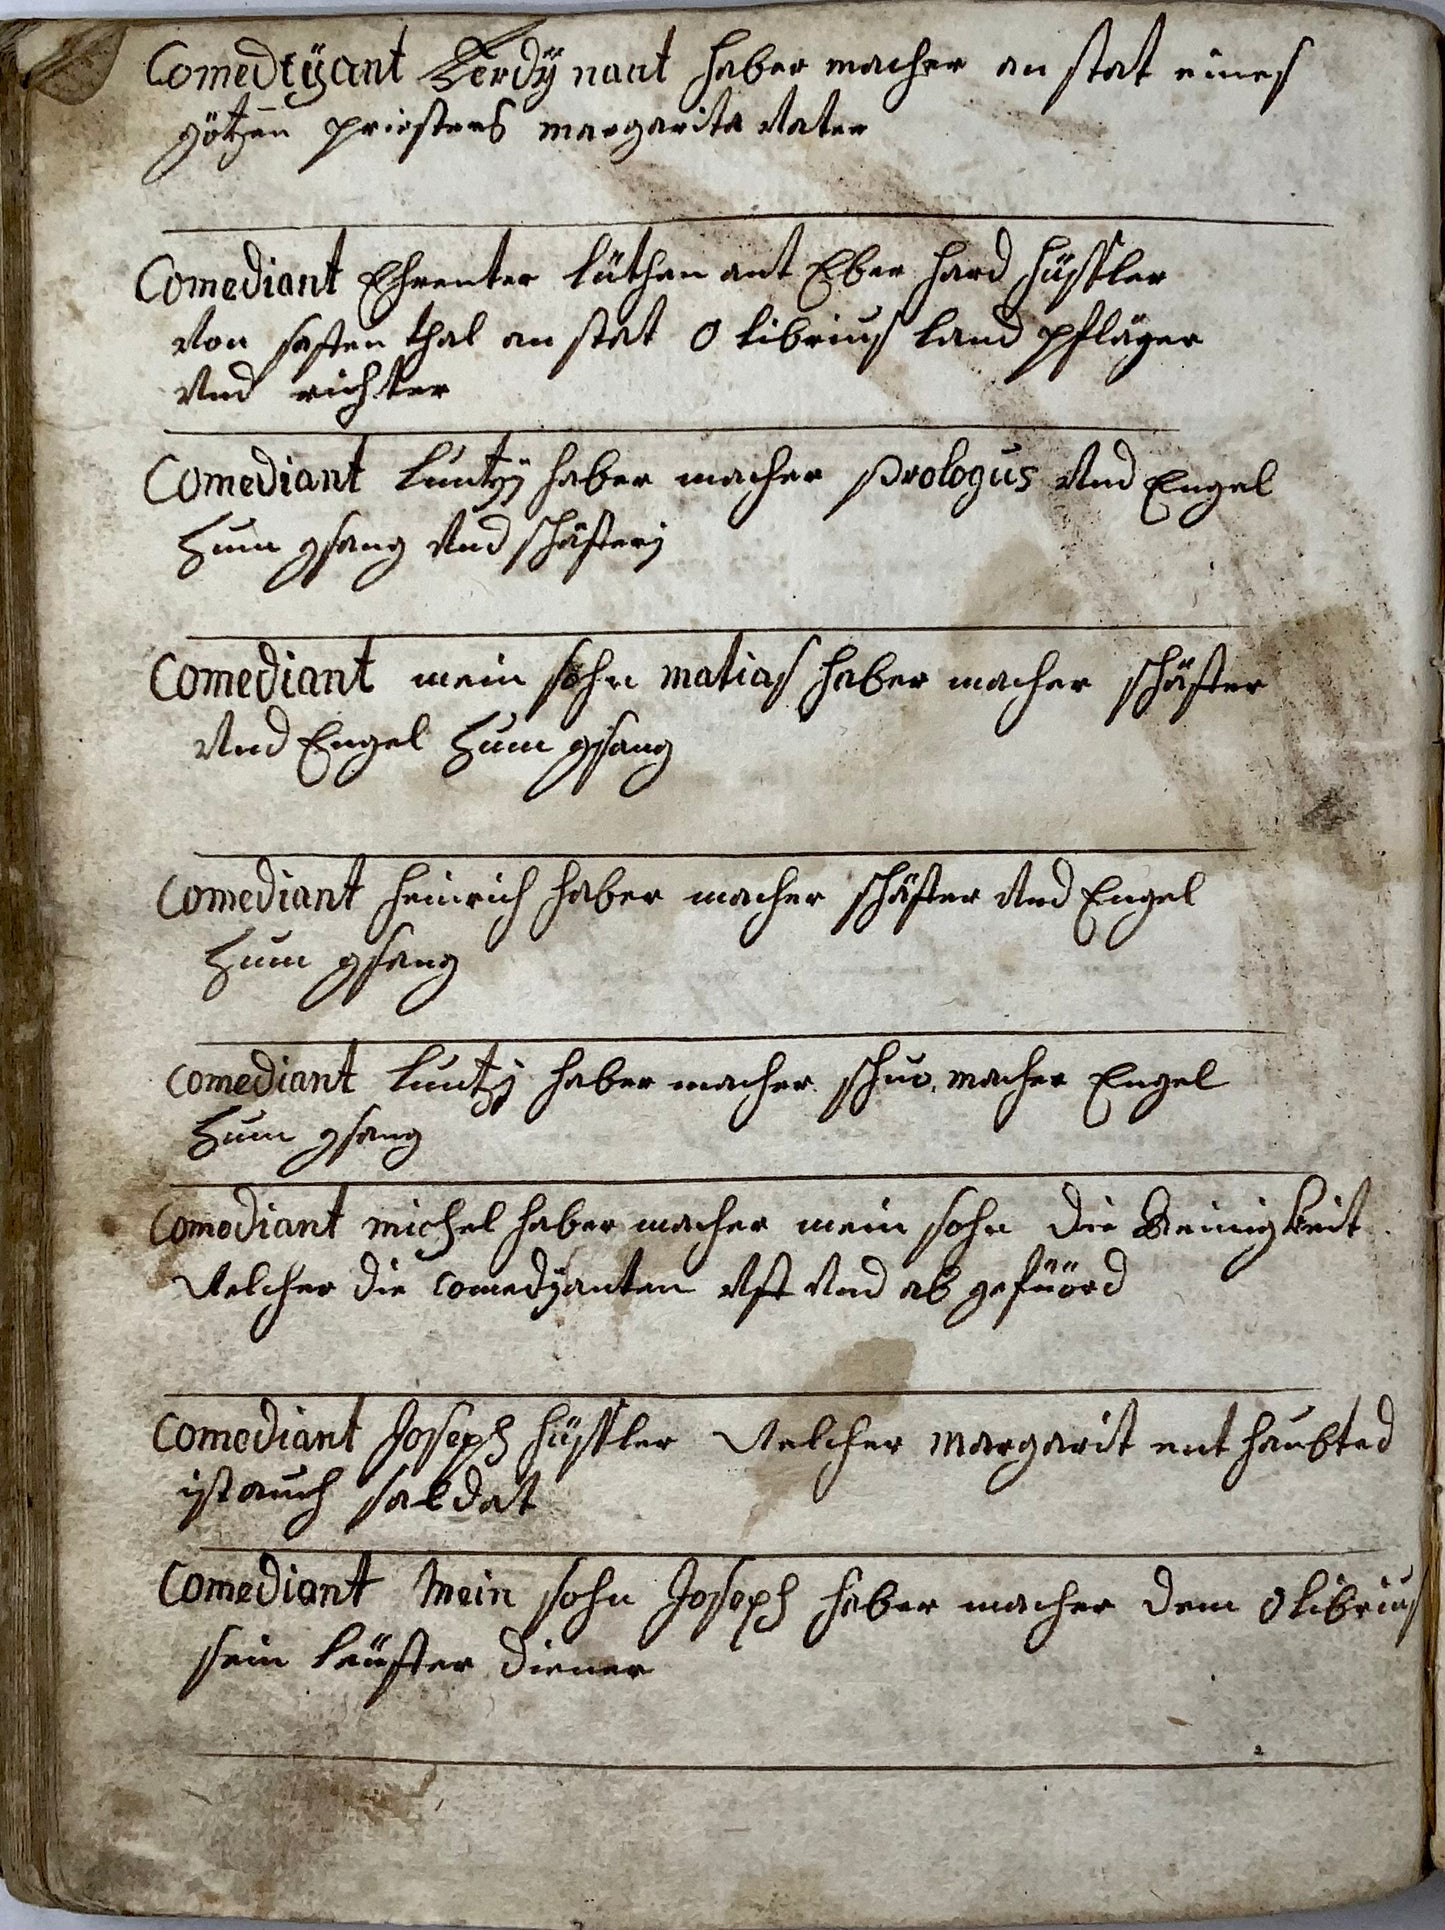 Comedeÿant Ferdÿ nant haber macher an stat eines
götzen priesters margarita Vater
Comediant Ehrenter lüthen ant Eber hard hüssler
Von sasten thal an stat O librius land pfläger
Vnd richter
Comediant luntzÿ haber macher prologus Vnd Engel
zum gsang Vnd schäffterj
Comediant mein sohn matias haber macher schäffter
Vnd Engel zum gsang
Comediant heinrich haber macher schäffter Vnd Engel
zum gsang
Comediant luntzj haber macher schuo macher Engel
zum gsang
Comediant michel haber macher mein sohn die Keinigkeit
Welcher die comedÿanten Vff Vnd ab gefüörd
Comediant Joseph hüssler Welcher Margarit ent haubted
ist auch saldat
Comediant Mein sohn Joseph haber macher dem Olibrius
sein leüffter diener